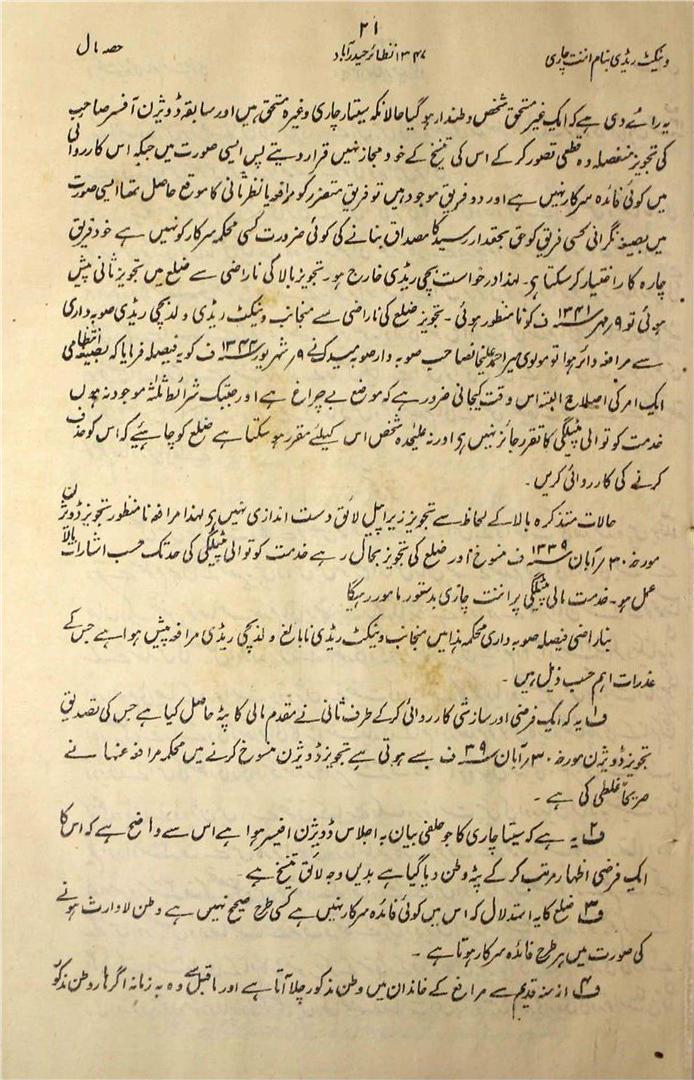 ۲۱
وینکٹ ریڈی بنام اننت چاری
۱۳۴۷ نظائر حیدرآباد
حصہ مال
یہ رائے دی ہے کہ ایک غیر مستحق شخص وطندار ہو گیا حالانکہ سیتا رچاری وغیرہ مستحق ہیں اور سابقہ ڈویژن آفسر صاحب
کی تجویز منفصلہ وہ قطعی تصور کر کے اس کی تنسیخ کے خود مجاز نہیں قرار دیتے پس ایسی صورت میں جبکہ اس کارروائی
میں کوئی فائدہ سرکار نہیں ہے اور دو فریق موجود ہیں تو فریق متضرر کو مرافعہ یا نظر ثانی کا موقع حاصل تھا ایسی صورت
میں بصیغہ نگرانی کسی فریق کو حق بحقدار رسید کا مصداق بنانے کی کوئی ضرورت کسی محکمہ سرکار کو نہیں ہے خود فریق
چارہ کار اختیار کر سکتا ہی۔ لہذا درخواست بچی ریڈی خارج ہو۔ تجویز بالا کی ناراضی سے ضلع میں تجویز ثانی پیش
ہوئی تو ۹ مہر ۱۳۴۱ ف کو نامنظور ہوئی۔ تجویز ضلع کی ناراضی سے منجانب وینکٹ ریڈی ولد بچی ریڈی صوبہ داری
سے مرافعہ دائر ہوا تو مولوی میر احمد علیخانصاحب صوبہ دار صوبہ میدک نے ۹ شہریور ۱۳۴۳ ف کو یہ فیصلہ فرمایا کہ بصیغہ انتظامی
ایک امر کی اصلاح البتہ اس وقت کیجانی ضرور ہے کہ موضع بے چراغ ہے اور جبتک شرائط ثلثہ موجود نہ ہوں
خدمت کوتوالی پٹیلگی کا تقرر جائز نہیں ہی اور نہ علیحدہ شخص اس کیلئے مقرر ہو سکتا ہے ضلع کو چاہیئے کہ اس کو حذف
کرنے کی کارروائی کریں۔
حالات متذکرہ بالا کے لحاظ سے تجویز زیر اپیل لائق دست اندازی نہیں ہی لہذا مرافعہ نامنظور تجویز ڈویژن
مورخہ ۳۰ آبان ۱۳۳۹ ف منسوخ اور ضلع کی تجویز بحال رہے خدمت کوتوالی پٹیلگی کی حد تک حسب اشارات بالا
عمل ہو۔ خدمت مالی پٹیلگی پر اننت چاری بدستور مامور رہیگا
بناراضی فیصلہ صوبہ داری محکمہ ہذا میں منجانب وینکٹ ریڈی نابالغ ولد بچی ریڈی مرافعہ پیش ہوا ہے جس کے
عذرات اہم حسب ذیل ہیں۔
ف۱ یہ کہ ایک فرضی اور سازشی کارروائی کر کے طرف ثانی نے مقدم مالی کا پٹہ حاصل کیا ہے جس کی تصدیق
تجویز ڈویژن مورخہ ۳۰ آبان ۳۹ ف سے ہوتی ہے تجویز ڈویژن منسوخ کرنے میں محکمہ مرافعہ عنہا نے
صریحاً غلطی کی ہے۔
ف۲ یہ ہے کہ سیتا چاری کا جو حلفی بیان بہ اجلاس ڈویژن افیسر ہوا ہے اس سے واضح ہے کہ اس کا
ایک فرضی اظہار مرتب کر کے پٹہ وطن دیا گیا ہے بدیں وجہ لائق تنسیخ ہے۔
ف۳ ضلع کا یہ استدلال کہ اس میں کوئی فائدہ سرکار نہیں ہے کسی طرح صحیح نہیں ہے وطن لاوارث ہونے
کی صورت میں ہر طرح فائدہ سرکار ہوتا ہے۔
ف۴ از سنہ قدیم سے مرافع کے خاندان میں وطن مذکور چلا آتا ہے اور ماقبل وہ بہ زمانہ اگرہار وطن مذکور